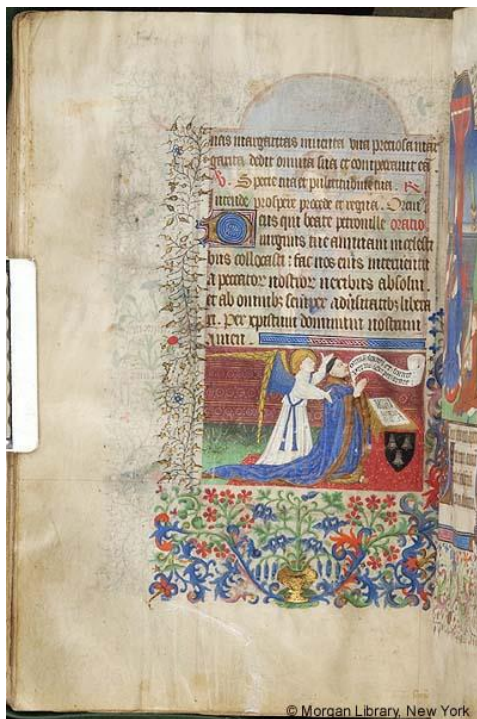 nas margaritas inventa una preciosa mar
garita dedit omnia sua et comparavit eā.
V. Specie tua et pulcritudine tua. R.
intende prospere procede et regna. Orem9
Deus qui beate petronille oratio
virginis tue in celesti
bus collocasti : fac nos eius intervenientu
a peccator nostror nexibus absolvi.
et ab omnibz semper adversitatibz libera
ri. Per xpistum dominum nostrum
amen.
© Morgan Library, New York